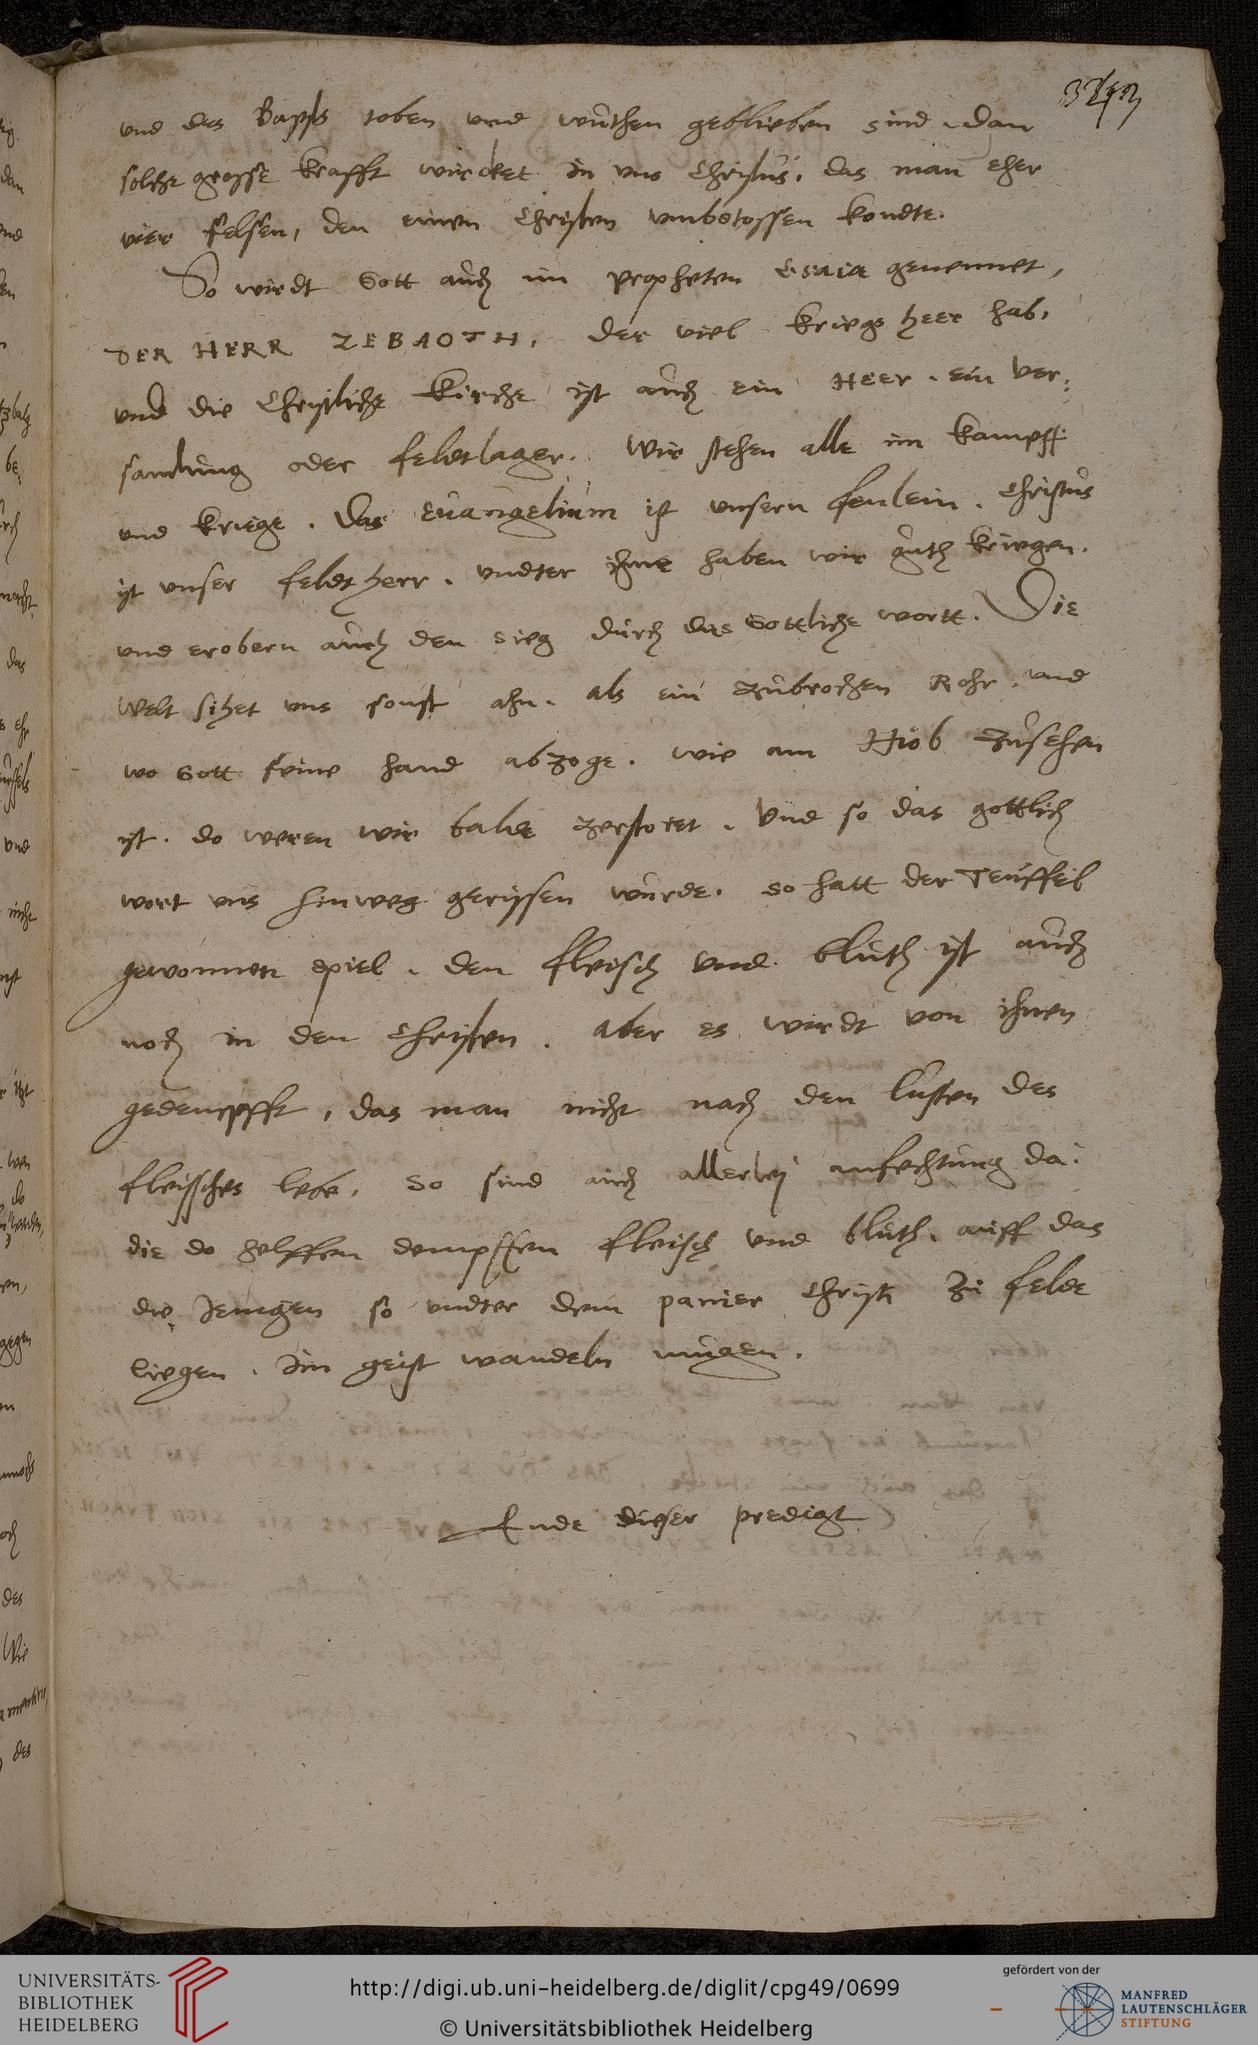 und des Bapsts toben und wuthen geblieben sind. dan
solche grosse krafft wircket in uns Christus, das man eher
vier felsen, den einen Christen umbstossen kondte.
So wirdt Gott auch im propheten Esaia genennet,
DER HERR ZEBAOTH, der viel kriegs heer hab,
und die Christliche kirche ist auch ein Heer, ein ver-
samlung oder feldtlager. Wir stehen alle im kampff
und kriege. Das Euangelium ist unsern fenlein. Christus
ist unser feldtherr. undter ihme haben wir guth kriegen.
und erobern auch den sieg durch das Gottliche wortt. Die
Welt sihet uns sonst ahn. als ein zubrochen Rohr. und
wo Gott seine hand abzoge. wie am Hiob zusehen
ist. do weren wir balde zerstoret. Und so das gottlich
wort uns hinweg gerissen wurde. so hatt der Teuffel
gewonnen spiel. den fleisch und bluth ist auch
noch in den Christen. aber es wirdt von ihnen
gedempfft, das man nicht nach den lusten des
fleisches lebe. So sind auch allerley anfechtung da.
die do helffen dempffen fleisch und bluth. auff das
die Jenigen so undter dem panier Christi zu felde
liegen. im geist wandeln mugen.
Ende dieser predigt
UNIVERSITÄTS-
BIBLIOTHEK
HEIDELBERG
http://digi.ub.uni-heidelberg.de/diglit/cpg49/0699
© Universitätsbibliothek Heidelberg
gefördert von der
MANFRED
LAUTENSCHLÄGER
STIFTUNG